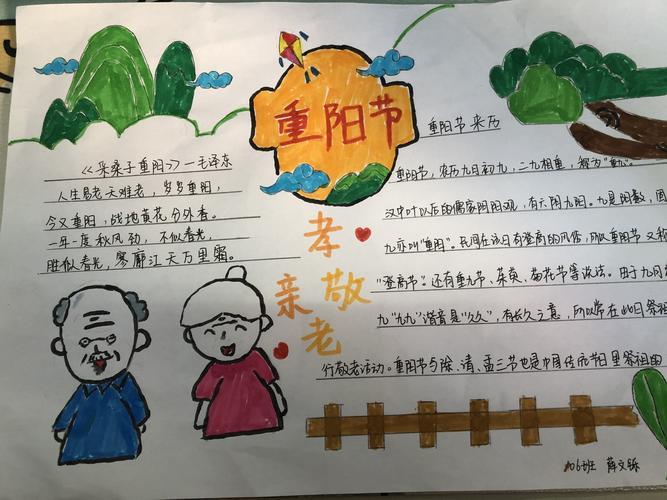 重阳节
《采桑子重阳》—毛泽东
人生易老天难老，岁岁重阳，
今又重阳，战地黄花分外香。
一年一度秋风劲，不似春光，
胜似春光，寥廓江天万里霜。
孝
亲敬
老
重阳节来历
重阳节，农历九月初九，二九相重，称为"重九"。
汉中叶以后的儒家阴阳观，有六阴九阳。九是阳数，因
九亦叫"重阳"。民间在该日有登高的风俗，所以重阳节又
"登高节"。还有重九节、茱萸、菊花节等说法。由于九月
九"九九"谐音是"久久"，有长久之意，所以常在此日祭祖
行敬老活动。重阳节与除、清、盂三节也是中国传统节日里祭祖的
06班 薛文铄